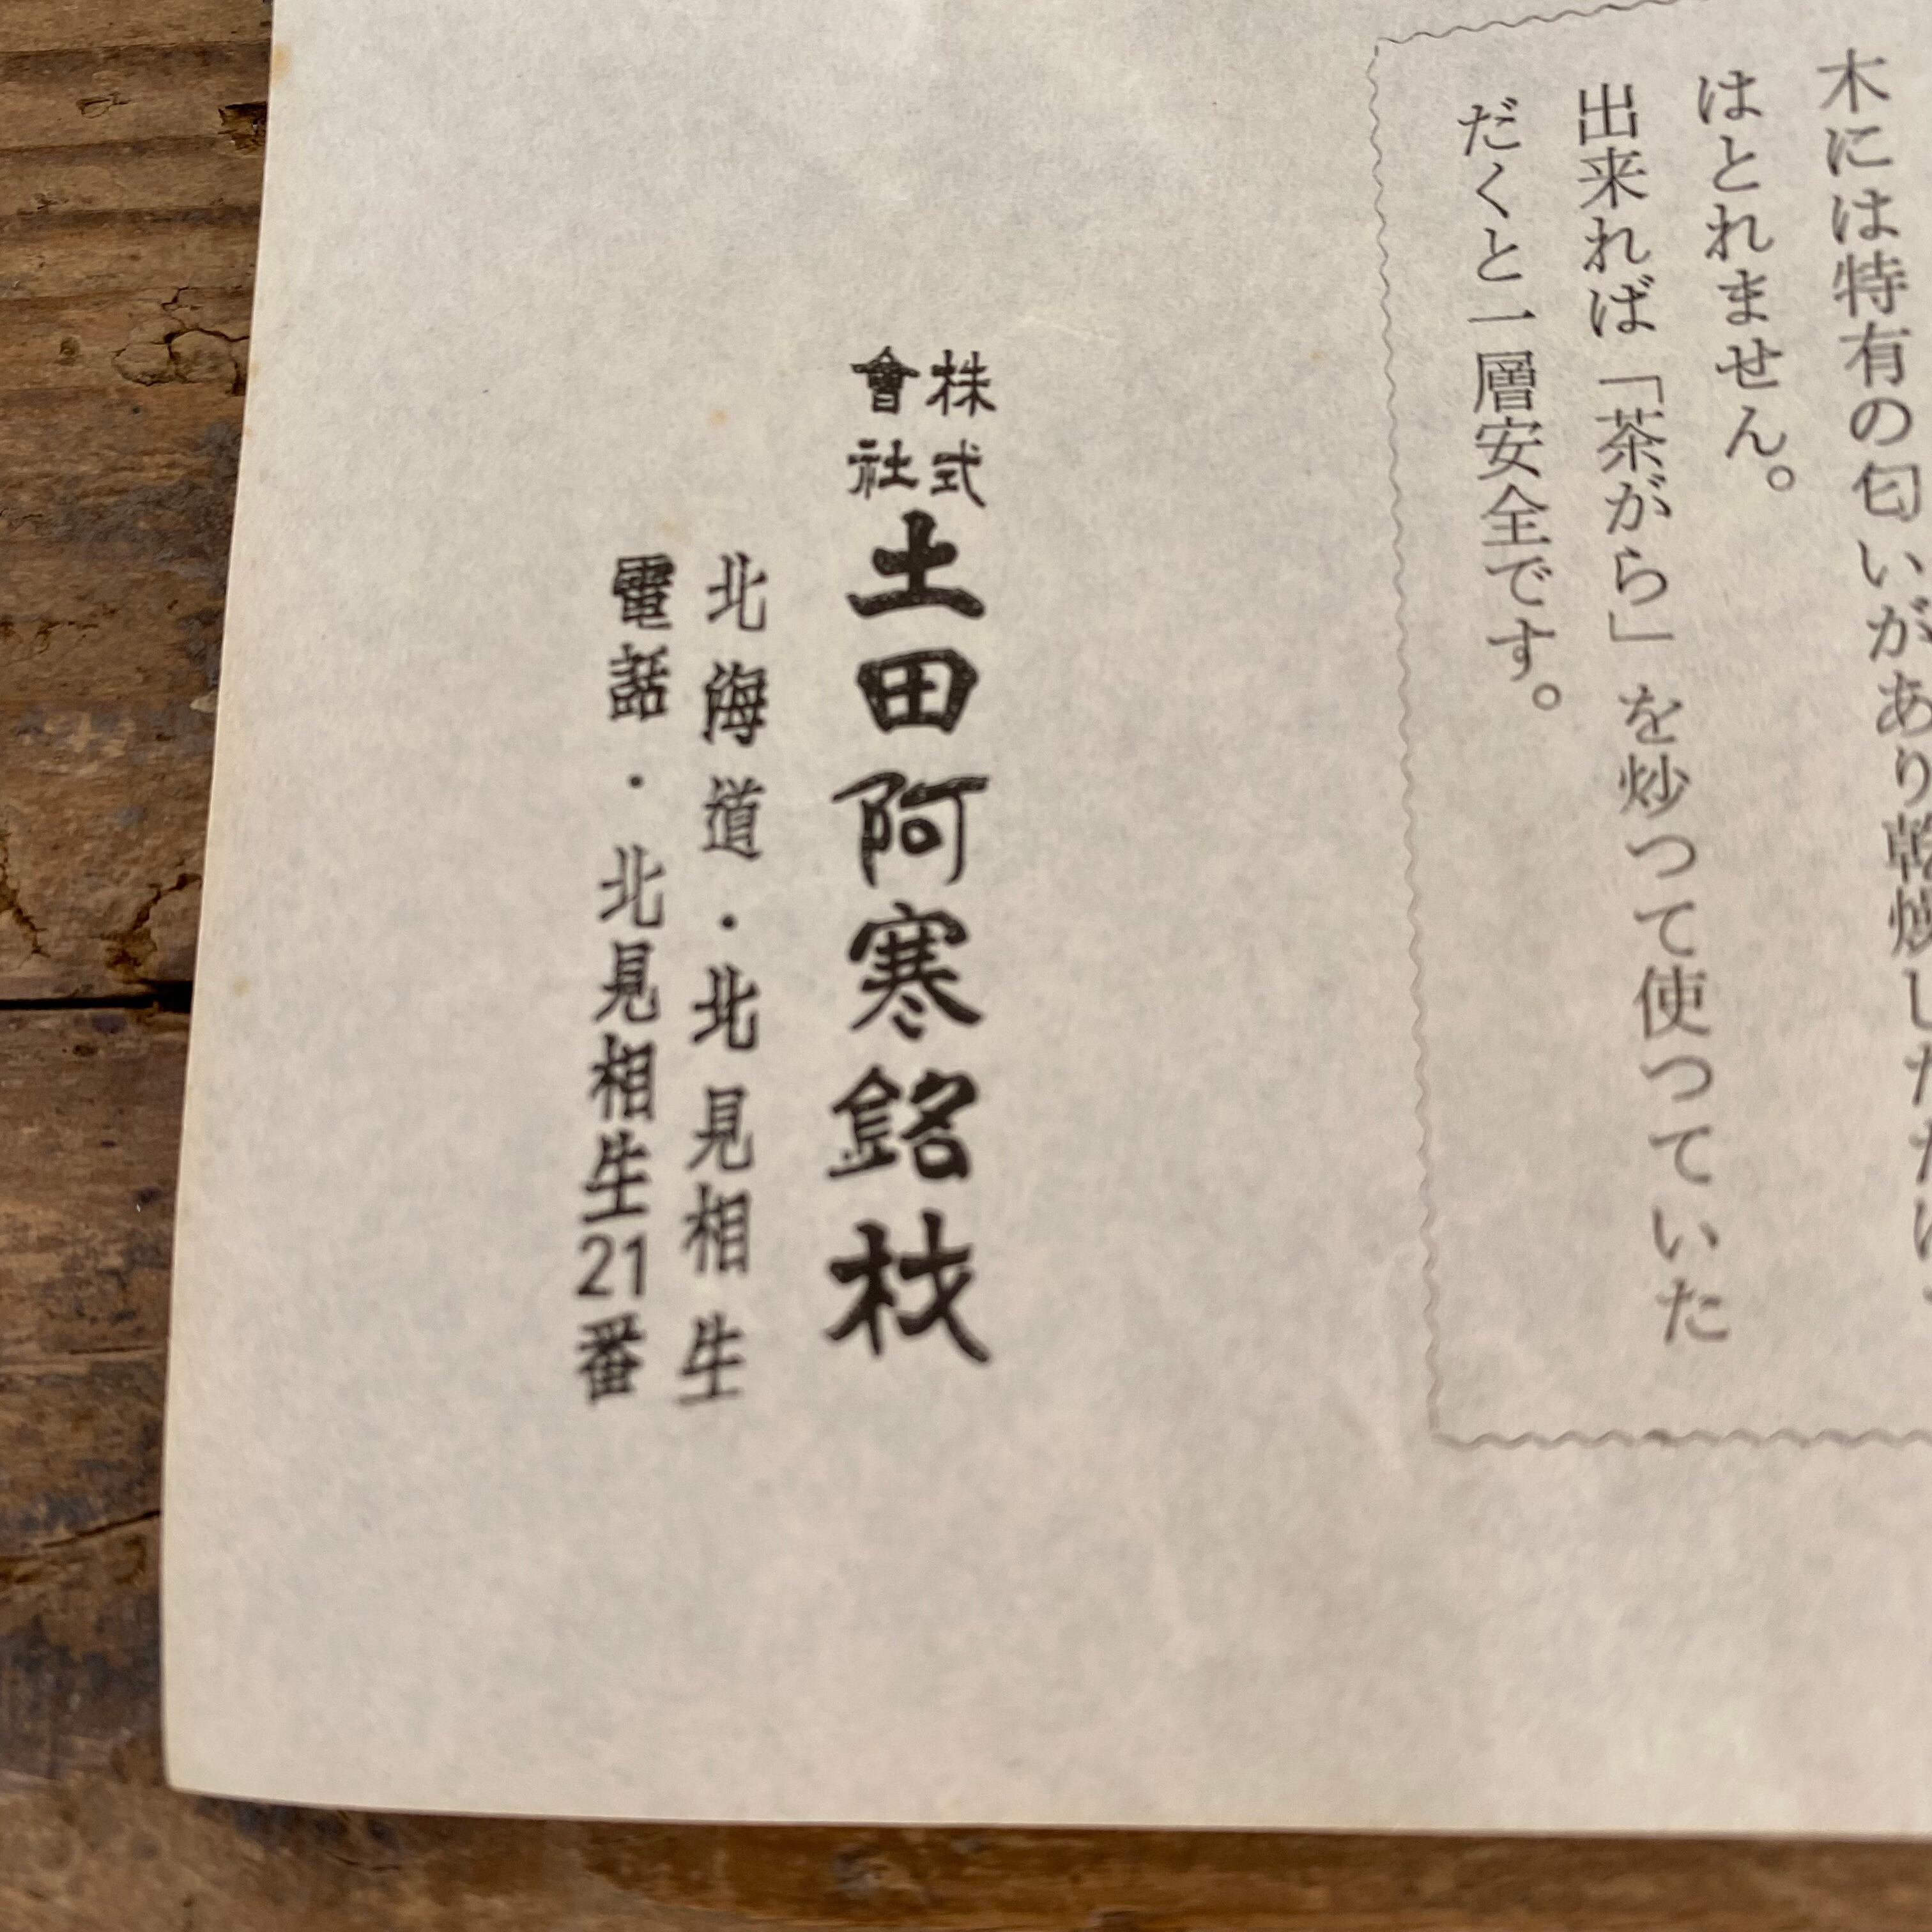 木には特有の匂いがあり乾燥しただけで
はとれません。
出来れば「茶がら」を炒つて使つていた
だくと一層安全です。
株式會社土田阿寒銘材
北海道・北見相生
電話・北見相生21番